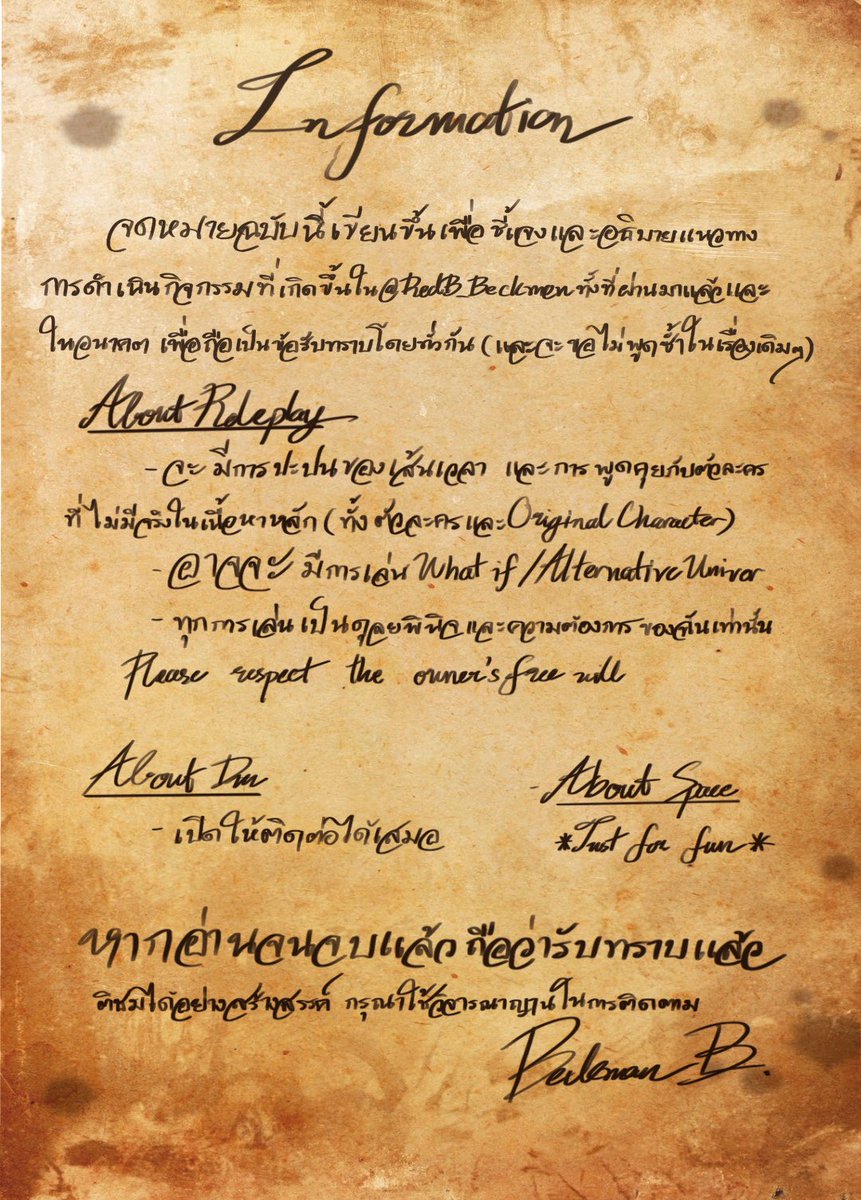 Information
จดหมายฉบับนี้เขียนขึ้นเพื่อ ชี้แจงและอธิบายแนวทาง
การดำเนินกิจกรรมที่เกิดขึ้นใน @RedB_Beckman ทั้งที่ผ่านมาแล้วและ
ในอนาคต เพื่อถือเป็นข้อรับทราบโดยทั่วกัน (และจะขอไม่พูดซ้ำในเรื่องเดิมๆ)
About Roleplay
- จะมีการปะปนของเส้นเวลา และการพูดคุยกับตัวละคร
ที่ไม่มีจริงในเนื้อหาหลัก (ทั้งตัวละครและ Original Character)
- อาจจะ มีการเล่น What if / Alternative Univer
- ทุกการเล่นเป็นดุลยพินิจและความต้องการของฉันเท่านั้น
Please respect the owner's free will
About Dm
- เปิดให้ติดต่อได้เสมอ
- About Space
*Just for fun*
หากอ่านจนจบแล้ว ถือว่ารับทราบแล้ว
ติชมได้อย่างสร้างสรรค์ กรุณาใช้วิจารณาญานในการติดตาม
Beckman B.